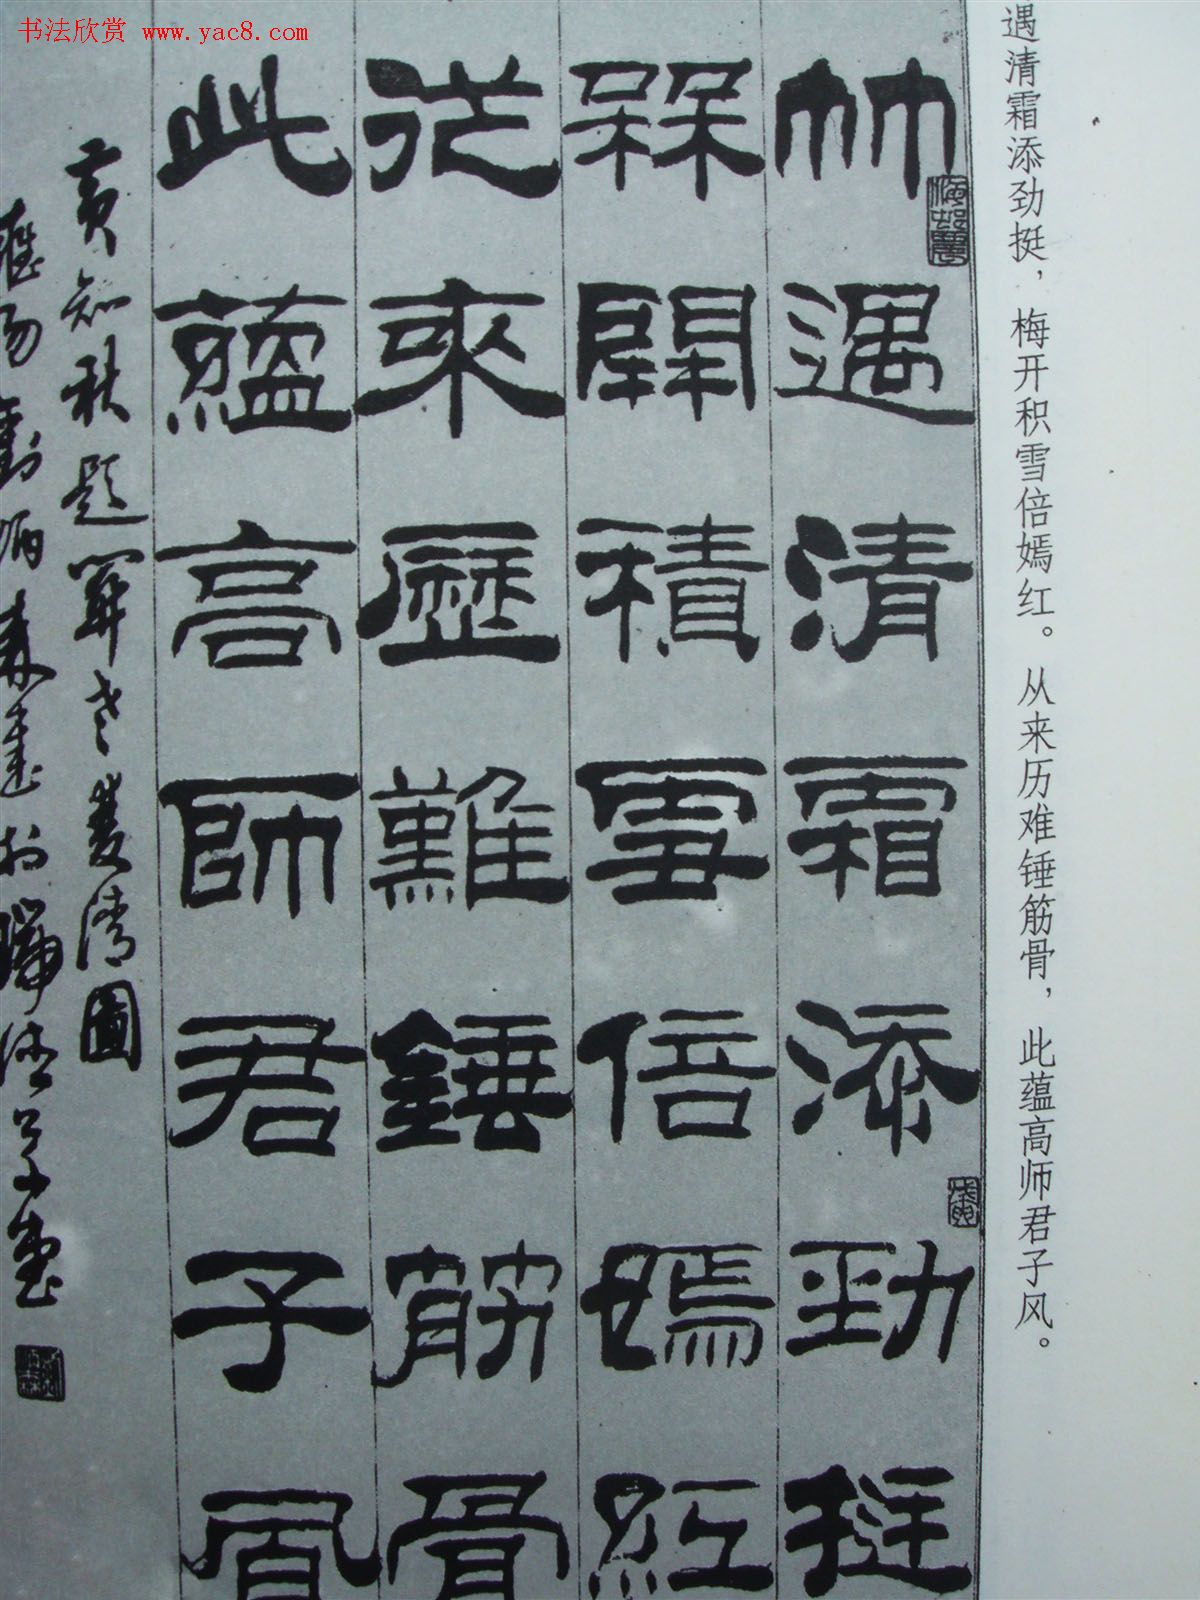 书法欣赏 www.yac8.com
遇清霜添劲挺，梅开积雪倍嫣红。从来历难锤筋骨，此蕴高师君子风。
竹遇清霜添勁挺
槑開積雪倍嫣紅
從來歷難錘筋骨
此蘊高師君子風
黃知秋題畢老菱清圖
劉炳森書於